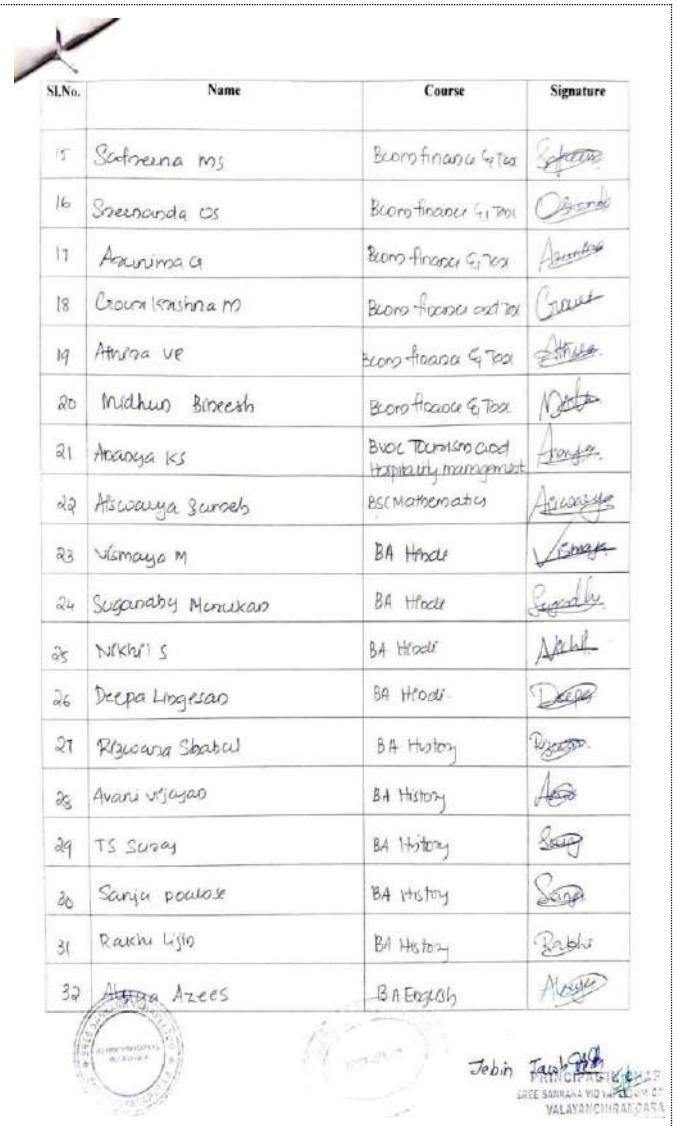 Sl.No. Name Course Signature
15 Safreena MS Bcom finance & Tax
16 Sreenanda OS Bcom finance & Tax
17 Arunima G Bcom finance & Tax
18 Gouri Krishna M Bcom finance and Tax Gouri
19 Athira VE Bcom finance & Tax Athira
20 Midhun Bineesh Bcom finance & Tax
21 Ananya KS Bvoc Tourism and
Hospitality management
22 Aiswarya Suresh BSC Mathematics Aiswarya
23 Vismaya M BA Hindi Vismaya
24 Sugandhy Murukan BA Hindi Sugandhy
25 Nikhil S BA Hindi Nikhil
26 Deepa Lingesan BA Hindi Deepa
27 Rizwana Shabul BA History
28 Avani Vijayan BA History
29 TS Suraj BA History Suraj
30 Sanju poulose BA History Sanju
31 Rakhi Lijin BA History Rakhi
32 Azees BA English
Jebin Jacob
PRINCIPAL
SREE SANKARA VIDYAPEETOM
VALAYANCHIRANGARA